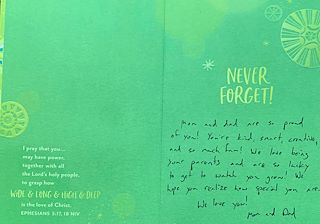 I pray that you...
may have power,
together with all
the Lord's holy people,
to grasp how
WIDE & LONG & HIGH & DEEP
is the love of Christ.
EPHESIANS 3:17, 18 NIV
NEVER
FORGET!
Mom and dad are so proud
of you! You're kind, smart, creative,
and so much fun! We love being
your parents and are so lucky
to get to watch you grow! We
hope you realize how special you are.
We love you!
Mom and Dad